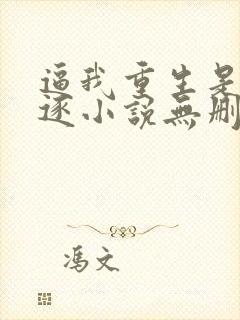 逼我重生是
逐小說無刪
馮文